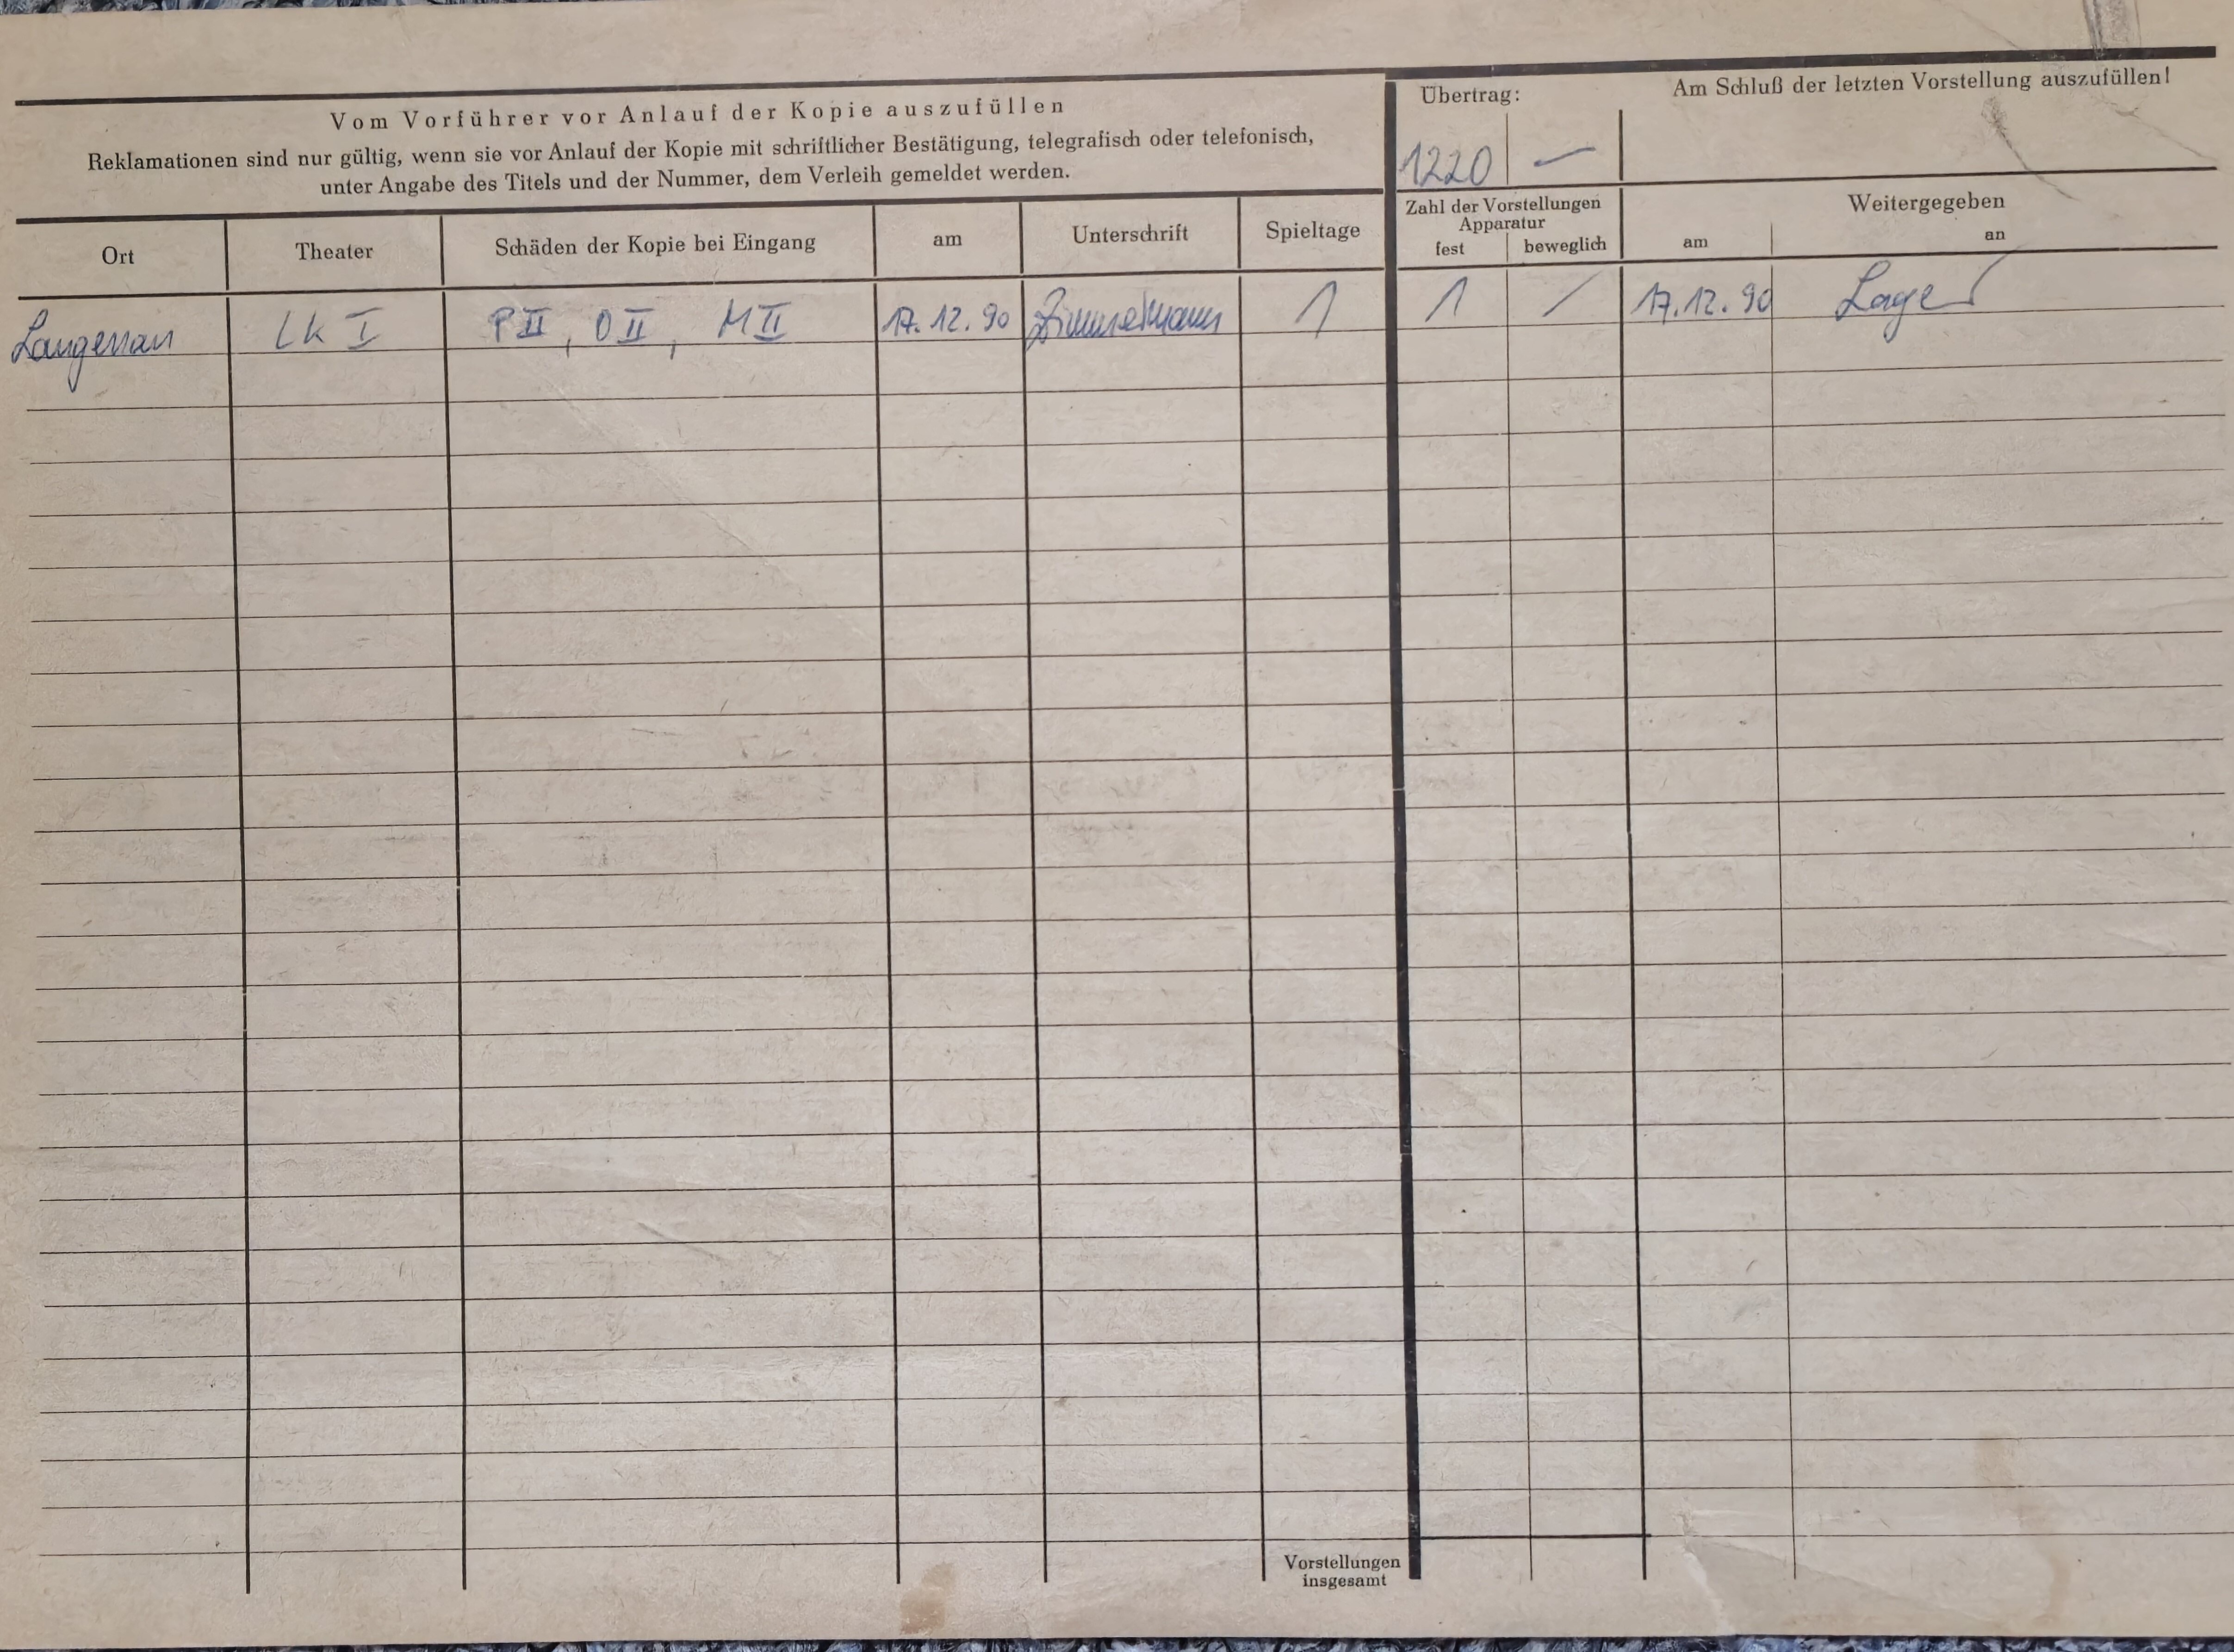 Vom Vorführer vor Anlauf der Kopie auszufüllen
Reklamationen sind nur gültig, wenn sie vor Anlauf der Kopie mit schriftlicher Bestätigung, telegrafisch oder telefonisch,
unter Angabe des Titels und der Nummer, dem Verleih gemeldet werden.
Übertrag:
Am Schluß der letzten Vorstellung auszufüllen!
1220 —
Ort Theater Schäden der Kopie bei Eingang am Unterschrift Spieltage
Zahl der Vorstellungen
Apparatur
fest beweglich
Weitergegeben
am an
Langenau LK I P II, O II, M II 17.12.90 Zimmermann 1 1 / 17.12.90 Lager
Vorstellungen
insgesamt